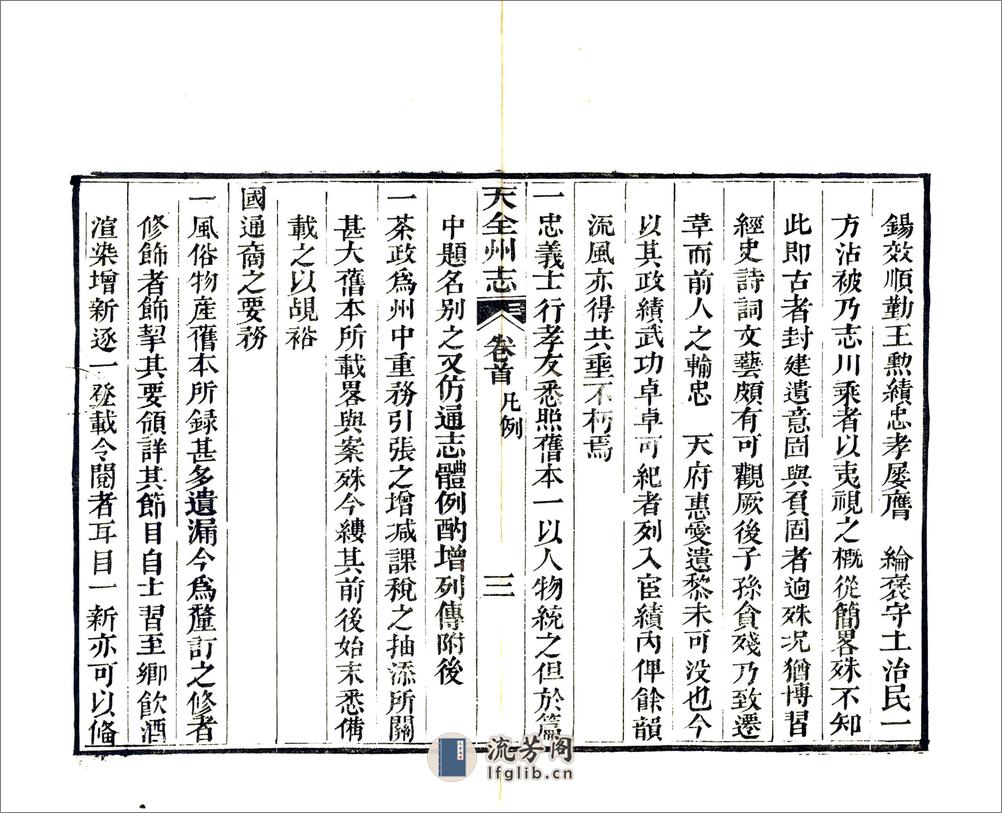 錫效順勤王勲績忠孝屡膺　綸褒守土治民一
方沾被乃志川乘者以夷視之概從簡畧殊不知
此即古者封建遺意固與負固者逈殊况猶博習
經史詩詞文藝頗有可觀厥後子孫貪殘乃致遷
革而前人之輸忠　天府惠愛遺黎未可没也今
以其政績武功卓卓可紀者列入宦績內俾餘韻
流風亦得共垂不朽焉
一忠義士行孝友悉照舊本一以人物統之但於篇
天全州志　卷首　凡例　三
中題名别之又仿通志體例酌增列傳附後
一茶政爲州中重務引張之增減課稅之抽添所關
甚大舊本所載畧與案殊今縷其前後始末悉備
載之以覘裕
國通商之要務
一風俗物産舊本所録甚多遺漏今爲釐訂之修者
修飾者飾挈其要領詳其節目自士習至鄉飲酒
渲染增新逐一登載令閱者耳目一新亦可以俻
流芳阁
lfglib.cn